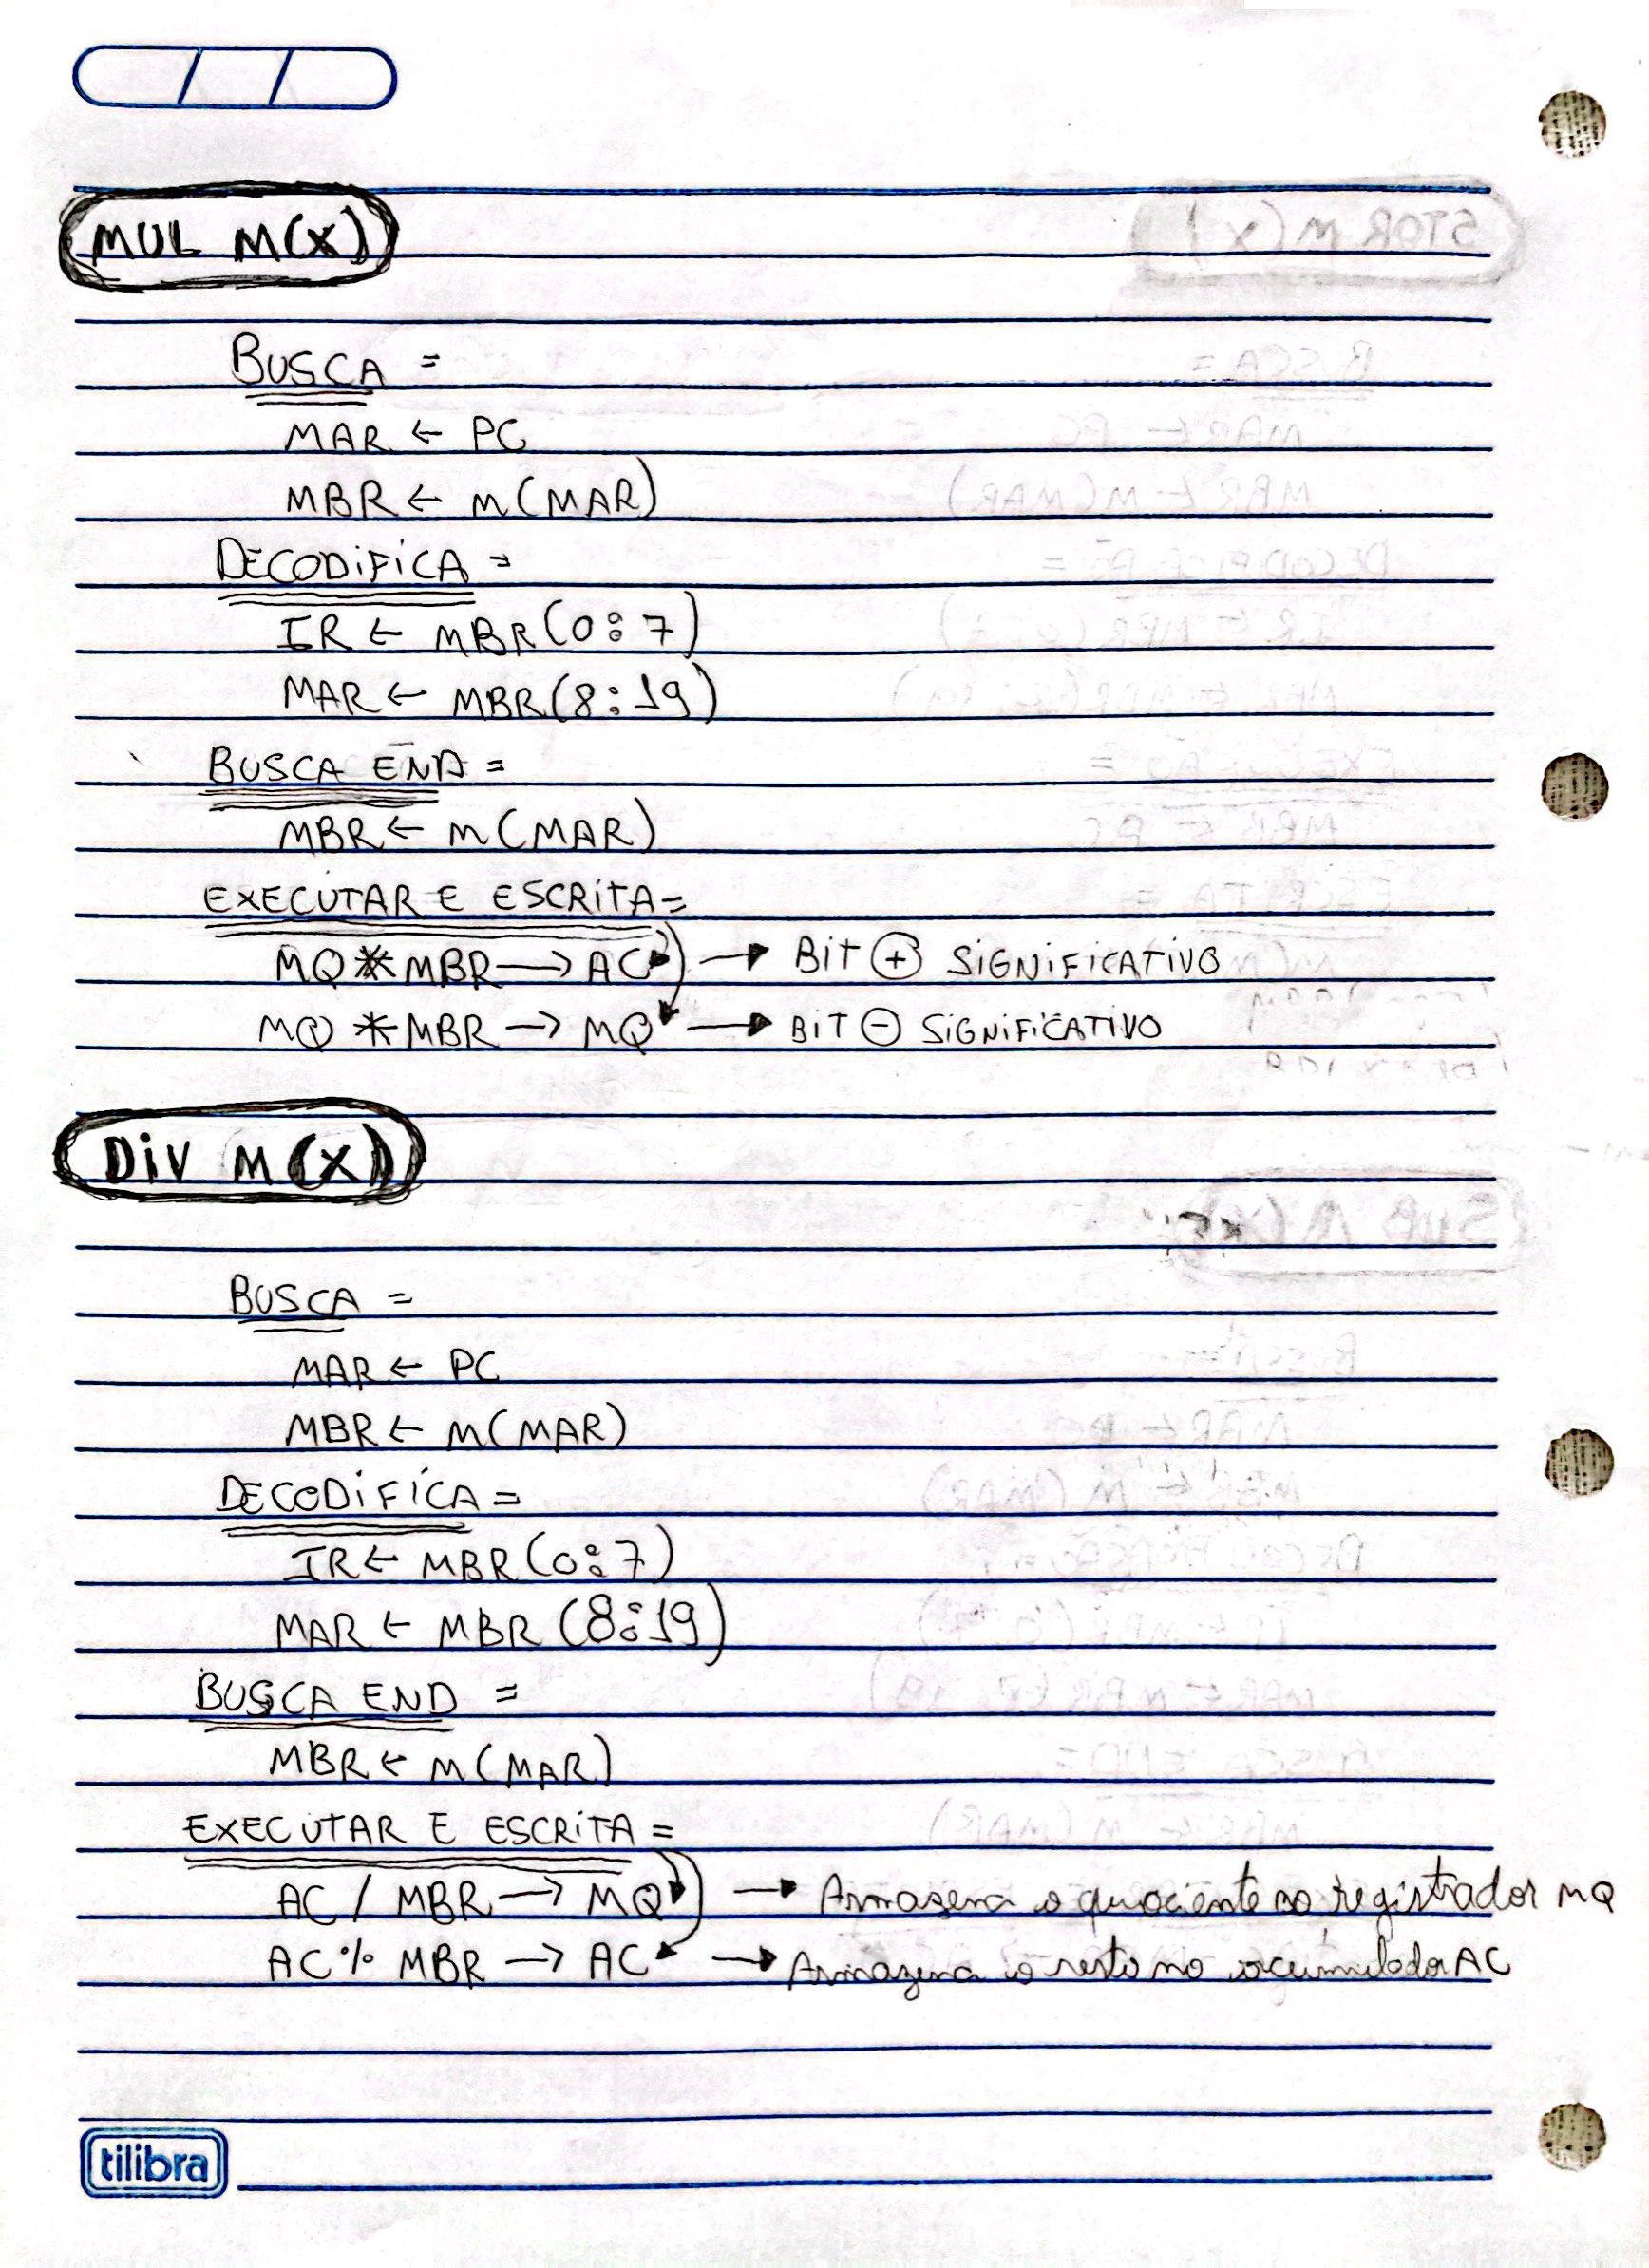 MUL M(X)
BUSCA =
MAR ← PC
MBR ← M(MAR)
DECODIFICA =
IR ← MBR(0:7)
MAR ← MBR(8:19)
BUSCA END =
MBR ← M(MAR)
EXECUTAR E ESCRITA =
MQ * MBR → AC → BIT ⊕ SIGNIFICATIVO
MQ * MBR → MQ → BIT ⊖ SIGNIFICATIVO
DIV M(X)
BUSCA =
MAR ← PC
MBR ← M(MAR)
DECODIFICA =
IR ← MBR(0:7)
MAR ← MBR (8:19)
BUSCA END =
MBR ← M(MAR)
EXECUTAR E ESCRITA =
AC / MBR → MQ → Armazena o quociente no registrador MQ
AC % MBR → AC → Armazena o resto no acumulador AC
tilibra